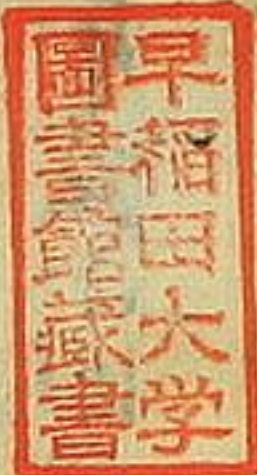 早稲田大学
圖書館蔵書